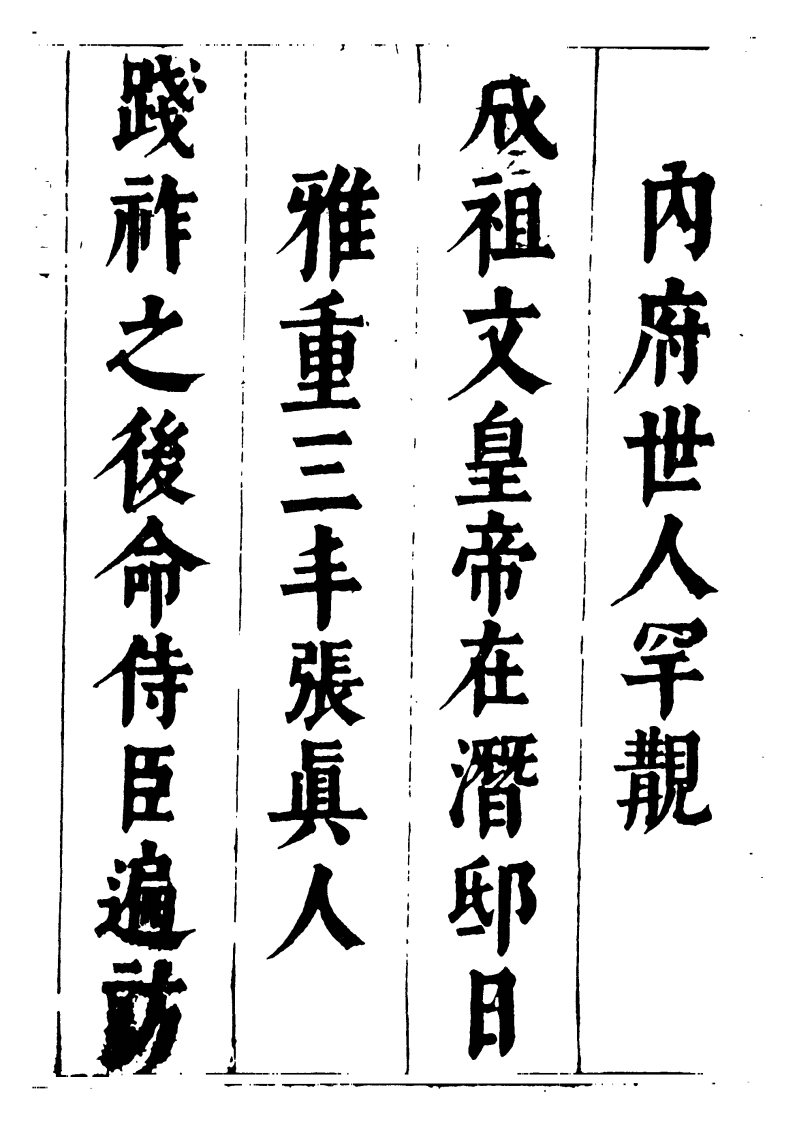 內府世人罕覯
成祖文皇帝在潛邸日
雅重三丰張眞人
踐祚之後命侍臣遍訪